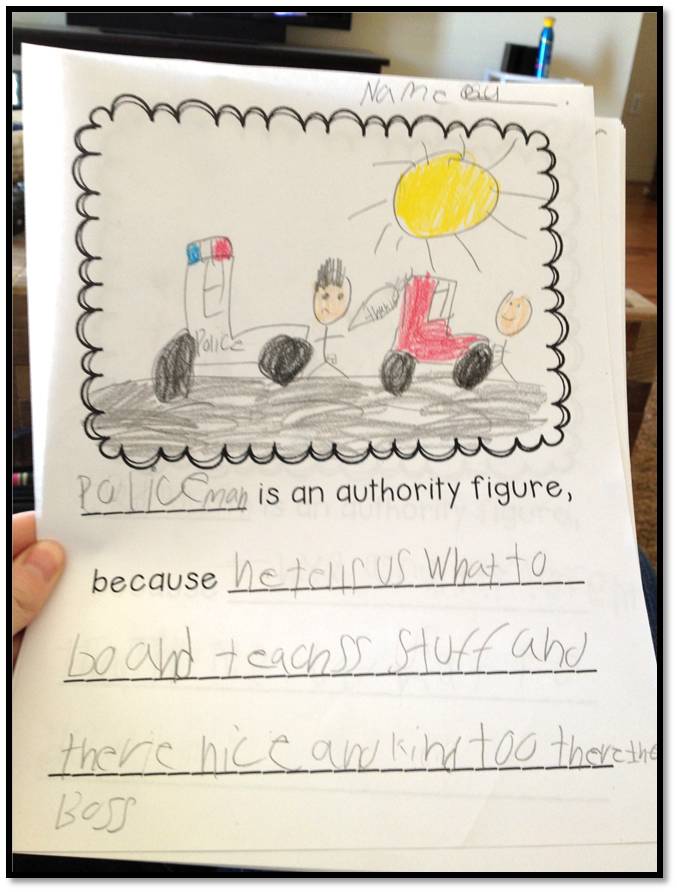 Name
Police
thank
Policeman is an authority figure,
because he tells us what to
bo and teachss stuff and
there nice and kind too there the
Boss